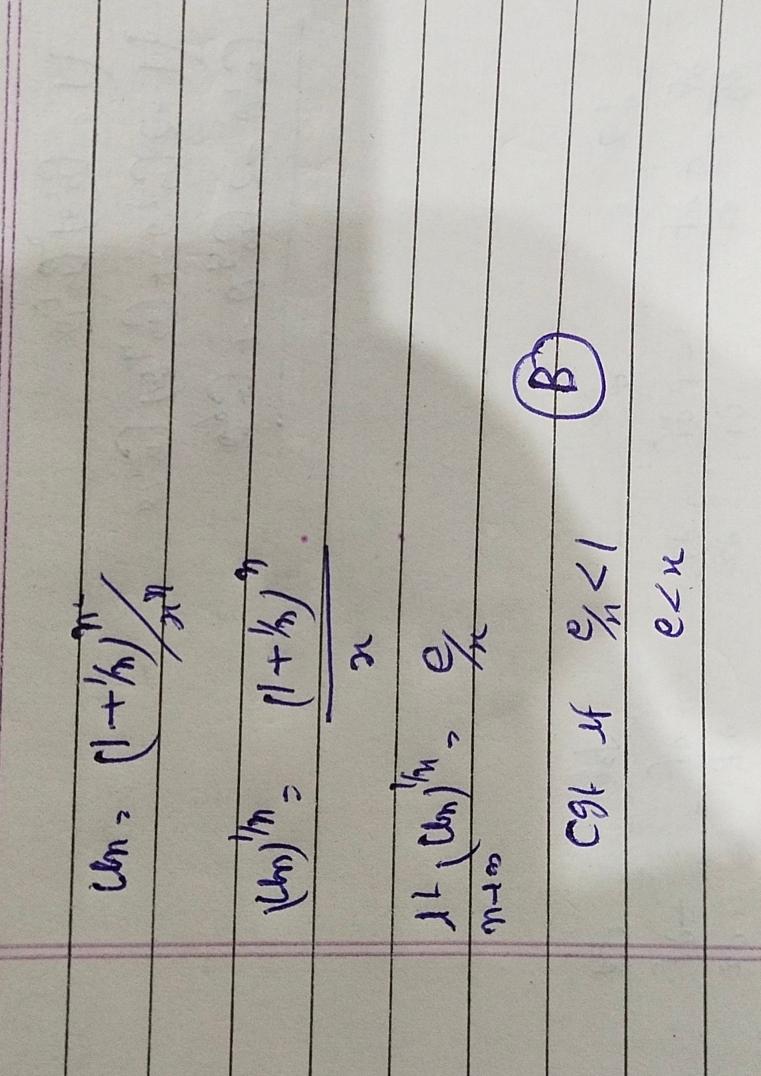 Un = (1+1/n)^n² / x^n
(Un)^1/n = (1+1/n)^n / x
lt n→∞ (Un)^1/n = e/x
cgt if e/x < 1 B
e < x